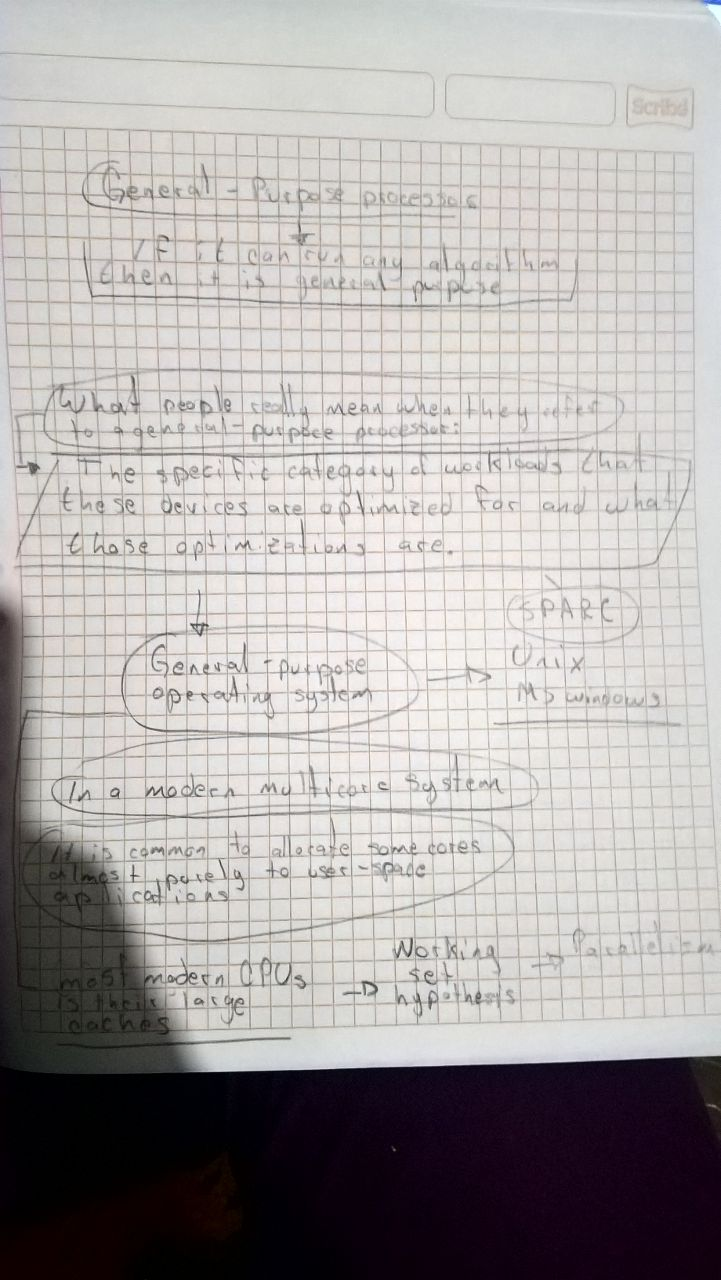 Scribe
General - Purpose processors
If it can run any algorithm
then it is general purpose
What people really mean when they refer
to a general-purpose processor:
The specific category of workloads that
these devices are optimized for and what
those optimizations are.
SPARC
General-purpose
operating system
Unix
MS windows
In a modern multicore system
It is common to allocate some cores
almost purely to user-space
applications
most modern CPUs
is their large
caches
Working
set
hypothesis
Parallelism